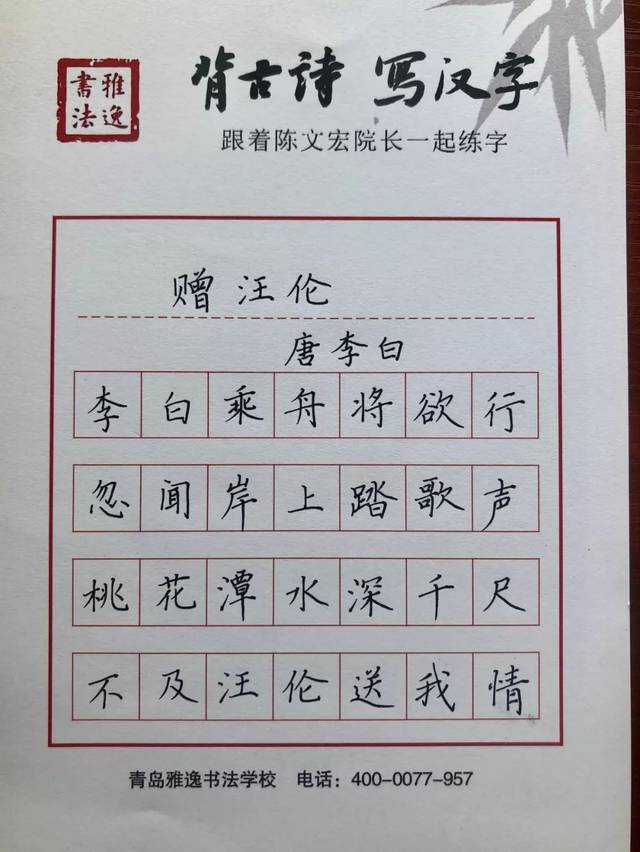 雅逸书法
背古诗 写汉字
跟着陈文宏院长一起练字
赠汪伦
唐李白
李白乘舟将欲行
忽闻岸上踏歌声
桃花潭水深千尺
不及汪伦送我情
青岛雅逸书法学校 电话：400-0077-957